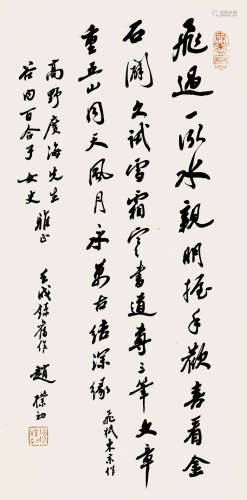 飛過一泓水親朋握手歡喜看金
石開久試雪霜寒書道尊三筆文章
重五山同天風月永萬古結深緣 飛抵東京作
高野廣海先生
谷内百合子女史 雅正
壬戌錄舊作 趙樸初